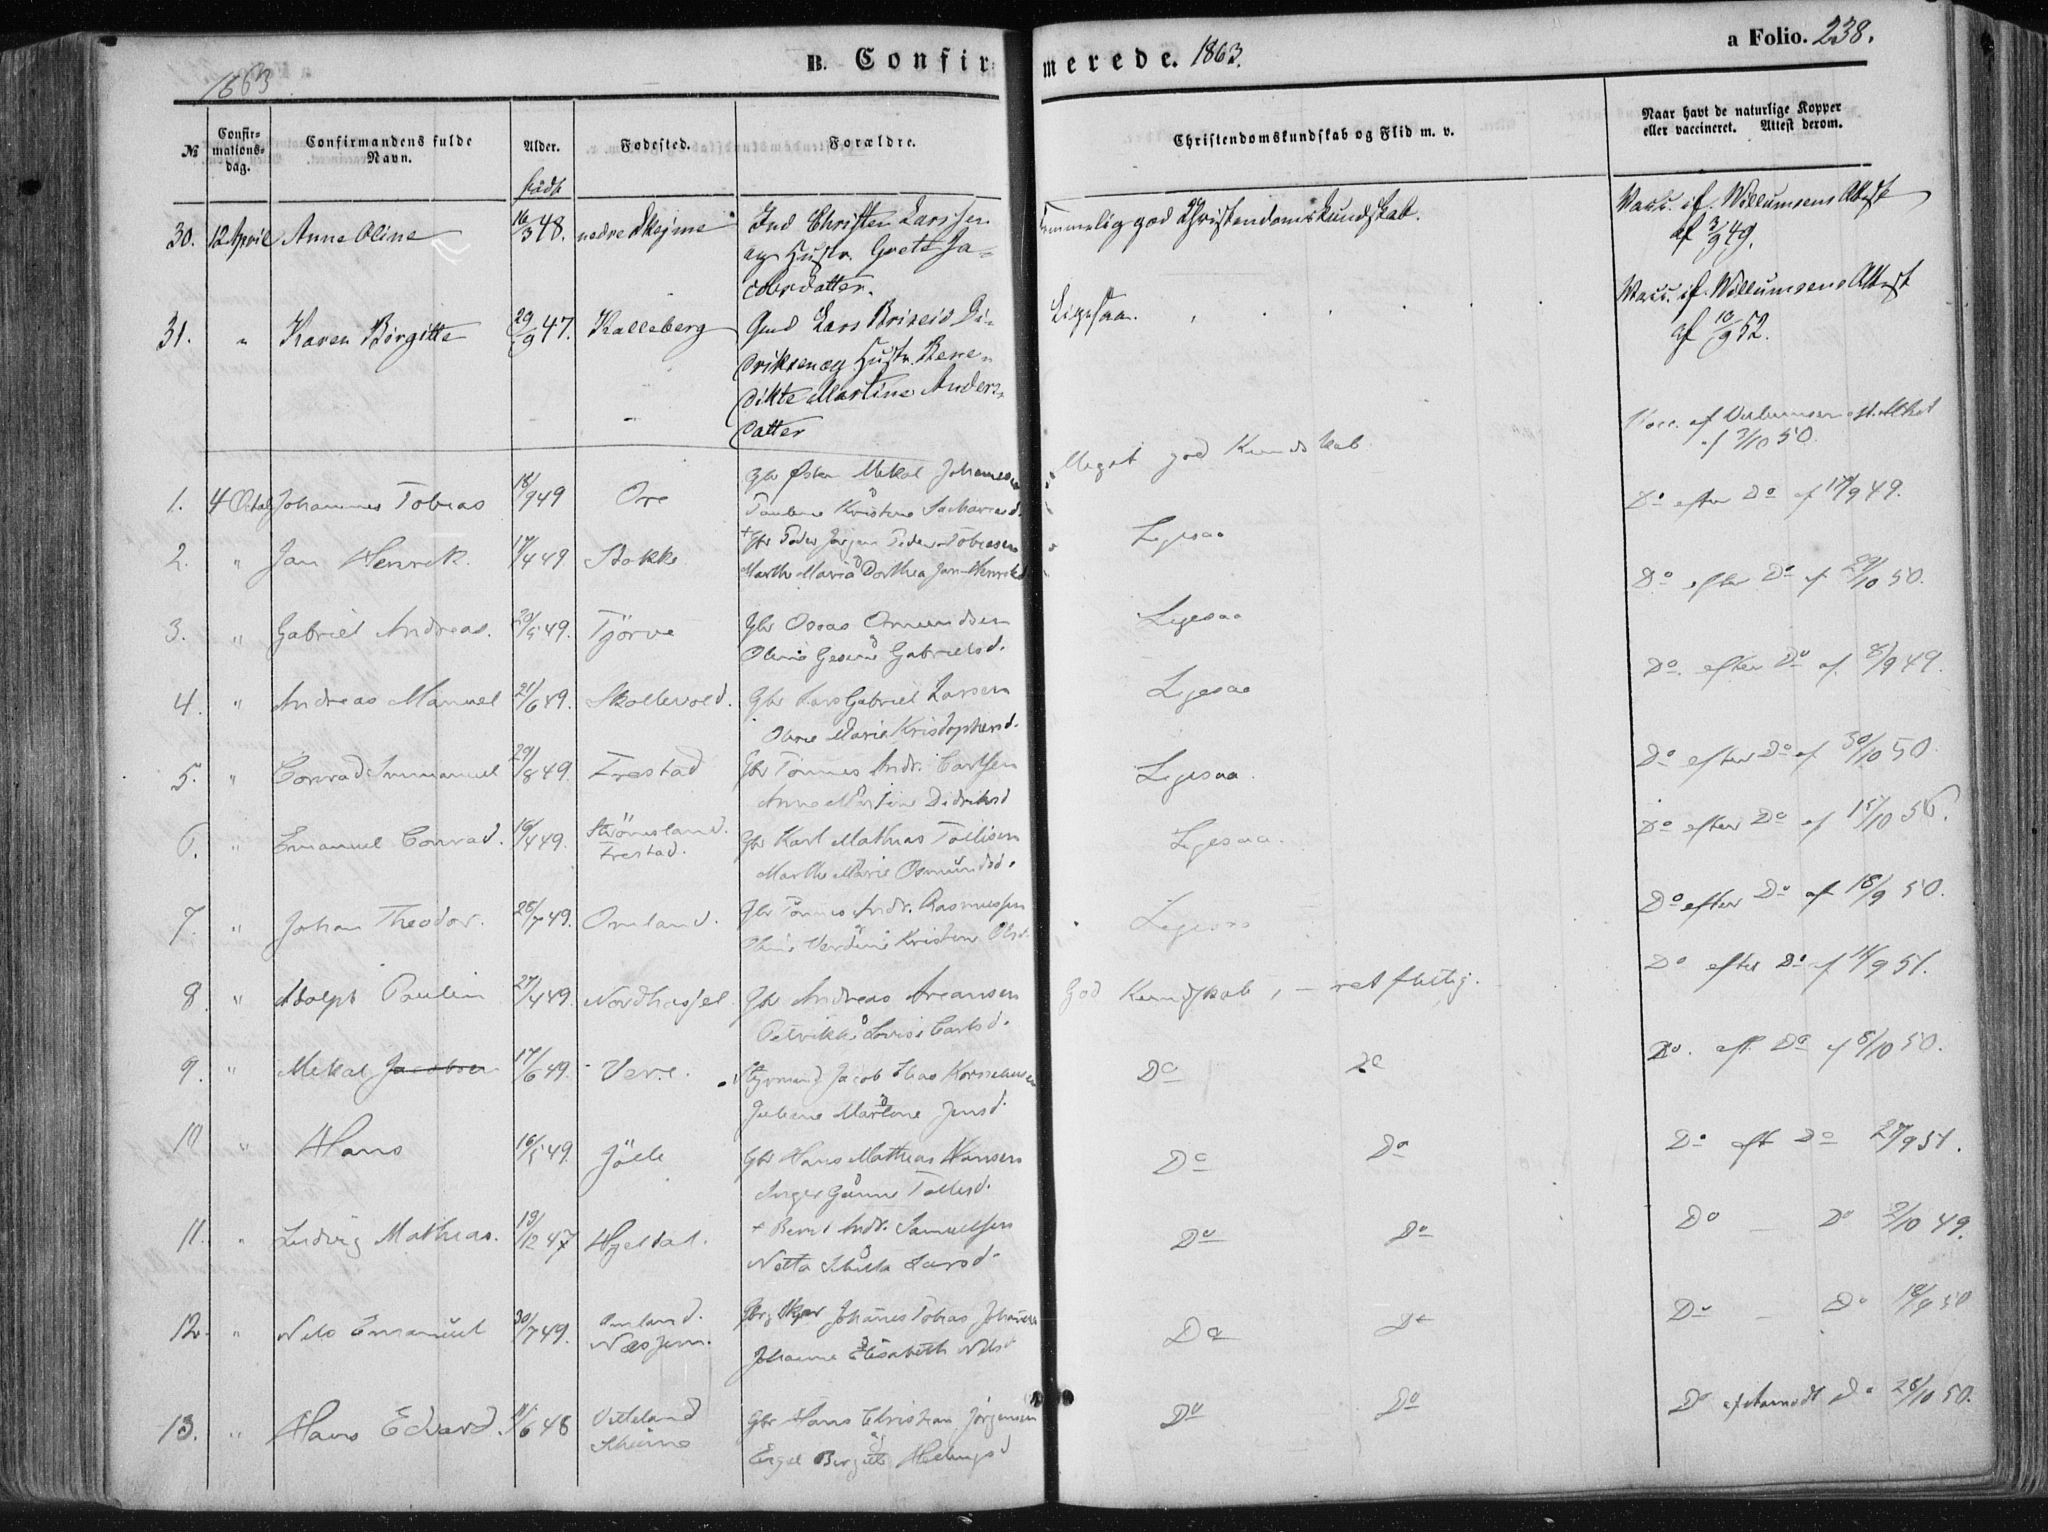 1863
B. Confirmerede. 1863.
a Folio. 238.
№
Confirmations-dag.
Confirmandens fulde Navn.
Alder.
Fødested.
Forældre.
Christendomskundskab og Flid m. v.
Naar havt de naturlige Kopper eller vaccineret. Attest derom.
født
30. 12 April Anne Oline 16/3 48. nedre Skejme Ind Christen Larssen temmelig god Christendomskundskab. Vacc. ef. Willumsens Attest
og Hustr. Grete Ja- af 3/9 49.
cobsdatter.
31. " Karen Birgitte 29/9 47. Kalleberg Gmd Lars Briseid Di- Ligesaa. Vacc. ef. Willumsens Attest
driksen og Hustr. Bene- af 10/9 52.
dikte Martine Anders-
datter
1. 4 Octob Johannes Tobias 18/9 49 Ore Mekal Johannesen Meget god Kundskab Vacc. af Attest
Pauline Kristine af 7/10 50.
2. " Jan Henrik. 17/4 49 Stokke Peder Tobiasen Ligesaa Do efter Do af 17/9 49.
Marthe Maria Dorthea Jan Henriksd
3. " Gabriel Andreas. 23/5 49. Tjörve Gbr Osvas Omundsen Ligesaa Do efter Do af 29/10 50.
Gabrielsd.
4. " Andreas Manuel 21/6 49. Skollevold. Gbr Lars Gabriel Larsen Ligesaa Do. efter Do af. 8/9 49.
Marie Kristophersd.
5. " Conrad Immanuel 29/8 49. Frestad Gbr Tönnes Andr. Carlsen Ligesaa. Do efter Do af 30/10 50
Anne Martine Didriksd
6. " Emanuel Conrad. 16/4 49. Gbr Karl Mathias Tollisen Ligesaa. Do efter Do af 15/10 56.
Frestad. Marthe Marie Osmundsd.
7. " Johan Theodor. 26/7 49. Omland. Gbr Tönnes Andr. Rasmussen Ligesaa Do efter Do af 18/9 50.
Kristine Olsd.
8. " Adolph Paulin 27/4 49. Nordhassel Gbr Andreas Areansen God Kundskab, - ret flittig. Do efter Do af 14/9 51.
Petrikke Lovise Carlsd.
9. " Mekal Jacobsen 17/6 49. Vere. Styrmand Jacob Elias Korneliusen Do Do Do. eft. Do af 8/10 50.
Juliane Martine Jensd.
10 " Hans 16/5 49. Jölle Gbr Hans Mathias Hansen Do Do Do eft Do 27/9 51.
Inger Gunne Tollisd.
11. " Ludvig Mathias. 19/12 47 Hjeldal. + Bernt Andr. Samuelsen Do Do Do - Do 2/10 49.
Netta Larsd.
12. " Nils Emanuel 30/7 49. Omland. Johannes Tobias Johannesen Do Do Do - Do 18/9 50
Næsjem. Johanne Elisabeth Nilsd
13. " Hans Edvard. 11/6 48 Viteland Gbr Hans Christian Jörgensen Do Do Do Do 28/10 50.
Engel Birgitte